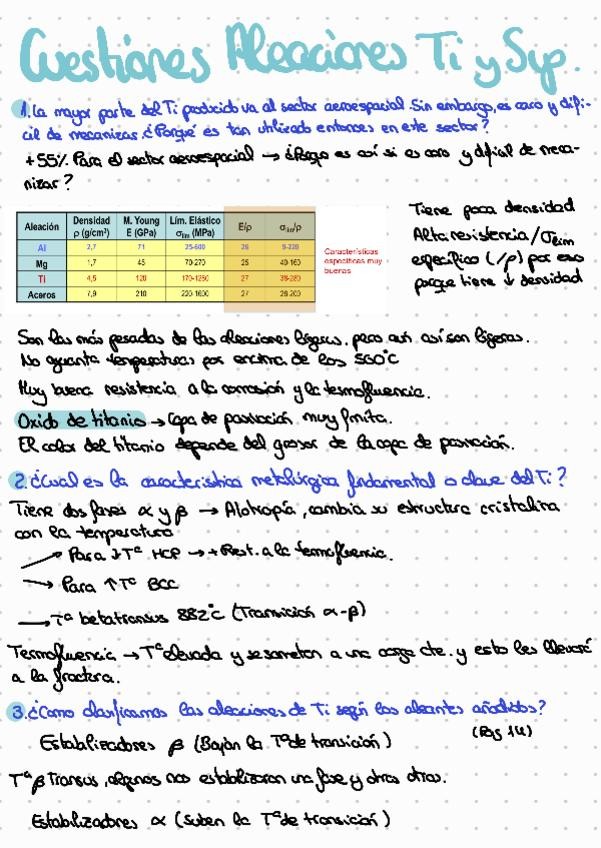 Cuestiones Aleaciones Ti y Sup.
1. La mayor parte del Ti producido va al sector aeroespacial. Sin embargo, es caro y difi-
cil de mecanizar. ¿Porqué es tan utilizado entonces en este sector?
+55% Para el sector aeroespacial → ¿Porqo es así si es caro y dificial de meca-
nizar?
Aleación Densidad ρ (g/cm³) M. Young E (GPa) Lím. Elástico σlím (MPa) E/ρ σlím/ρ
Al 2,7 71 25-600 26 9-220
Mg 1,7 45 70-270 25 40-160
Ti 4,5 120 170-1250 27 38-280
Aceros 7,9 210 220-1600 27 28-200
Características
específicas muy
buenas
Tiene poca densidad
Alta resistencia/σlim
específico (/ρ) por eso
porque tiene ↓ densidad
Son las más pesadas de las aleaciones ligeras, pero aun así son ligeras.
No aguanta temperaturas por encima de los 500°C
Muy buena resistencia a la corrosión y la termofluencia.
Oxido de titanio → Capa de pasivación muy finita.
El color del titanio depende del grosor de la capa de pasivación.
2. ¿Cual es la caracteristica metalúrgica fundamental o clave del Ti?
Tiene dos fases α y β → Alotropía, cambia su estructura cristalina
con la temperatura
→ Para ↓Tª HCP → + Rest. a la termofluencia.
→ Para ↑Tª BCC
→ Tª betatransus 882°C (Transición α-β)
Termofluencia → Tª elevada y se someten a una carga cte. y esto les llevará
a la fractura.
3. ¿Como clasificamos las aleaciones de Ti según los aleantes añadidos?
Estabilizadores β (Bajan la Tª de transición)
(Pag 14)
Tª β Transus, algunos nos estabilizaran una fase y otros otras.
Estabilizadores α (suben la Tª de transición)